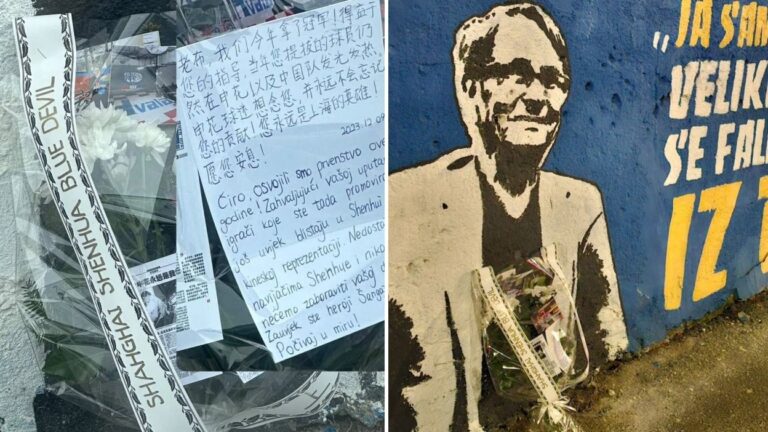 SHANGHAI SHENHUA BLUE DEVIL
老布，我们今年拿了冠军！得益于
您的指导，当年您提拔的球员们仍
然在申花以及中国队发光发热，
申花球迷想念您，并永远不会忘记
您的贡献！您永远是上海的英雄！
愿您安息！
2023.12.09
Ćiro, osvojili smo prvenstvo ove
godine! Zahvaljujući vašoj
igrači koje ste tada
još uvijek blistaju u Shenhui
kineskoj reprezentaciji.
navijačima Shenhue i
nećemo zaboraviti vašoj
Zauvijek ste heroji
Počivaj u miru!
„JA
SE
IZ